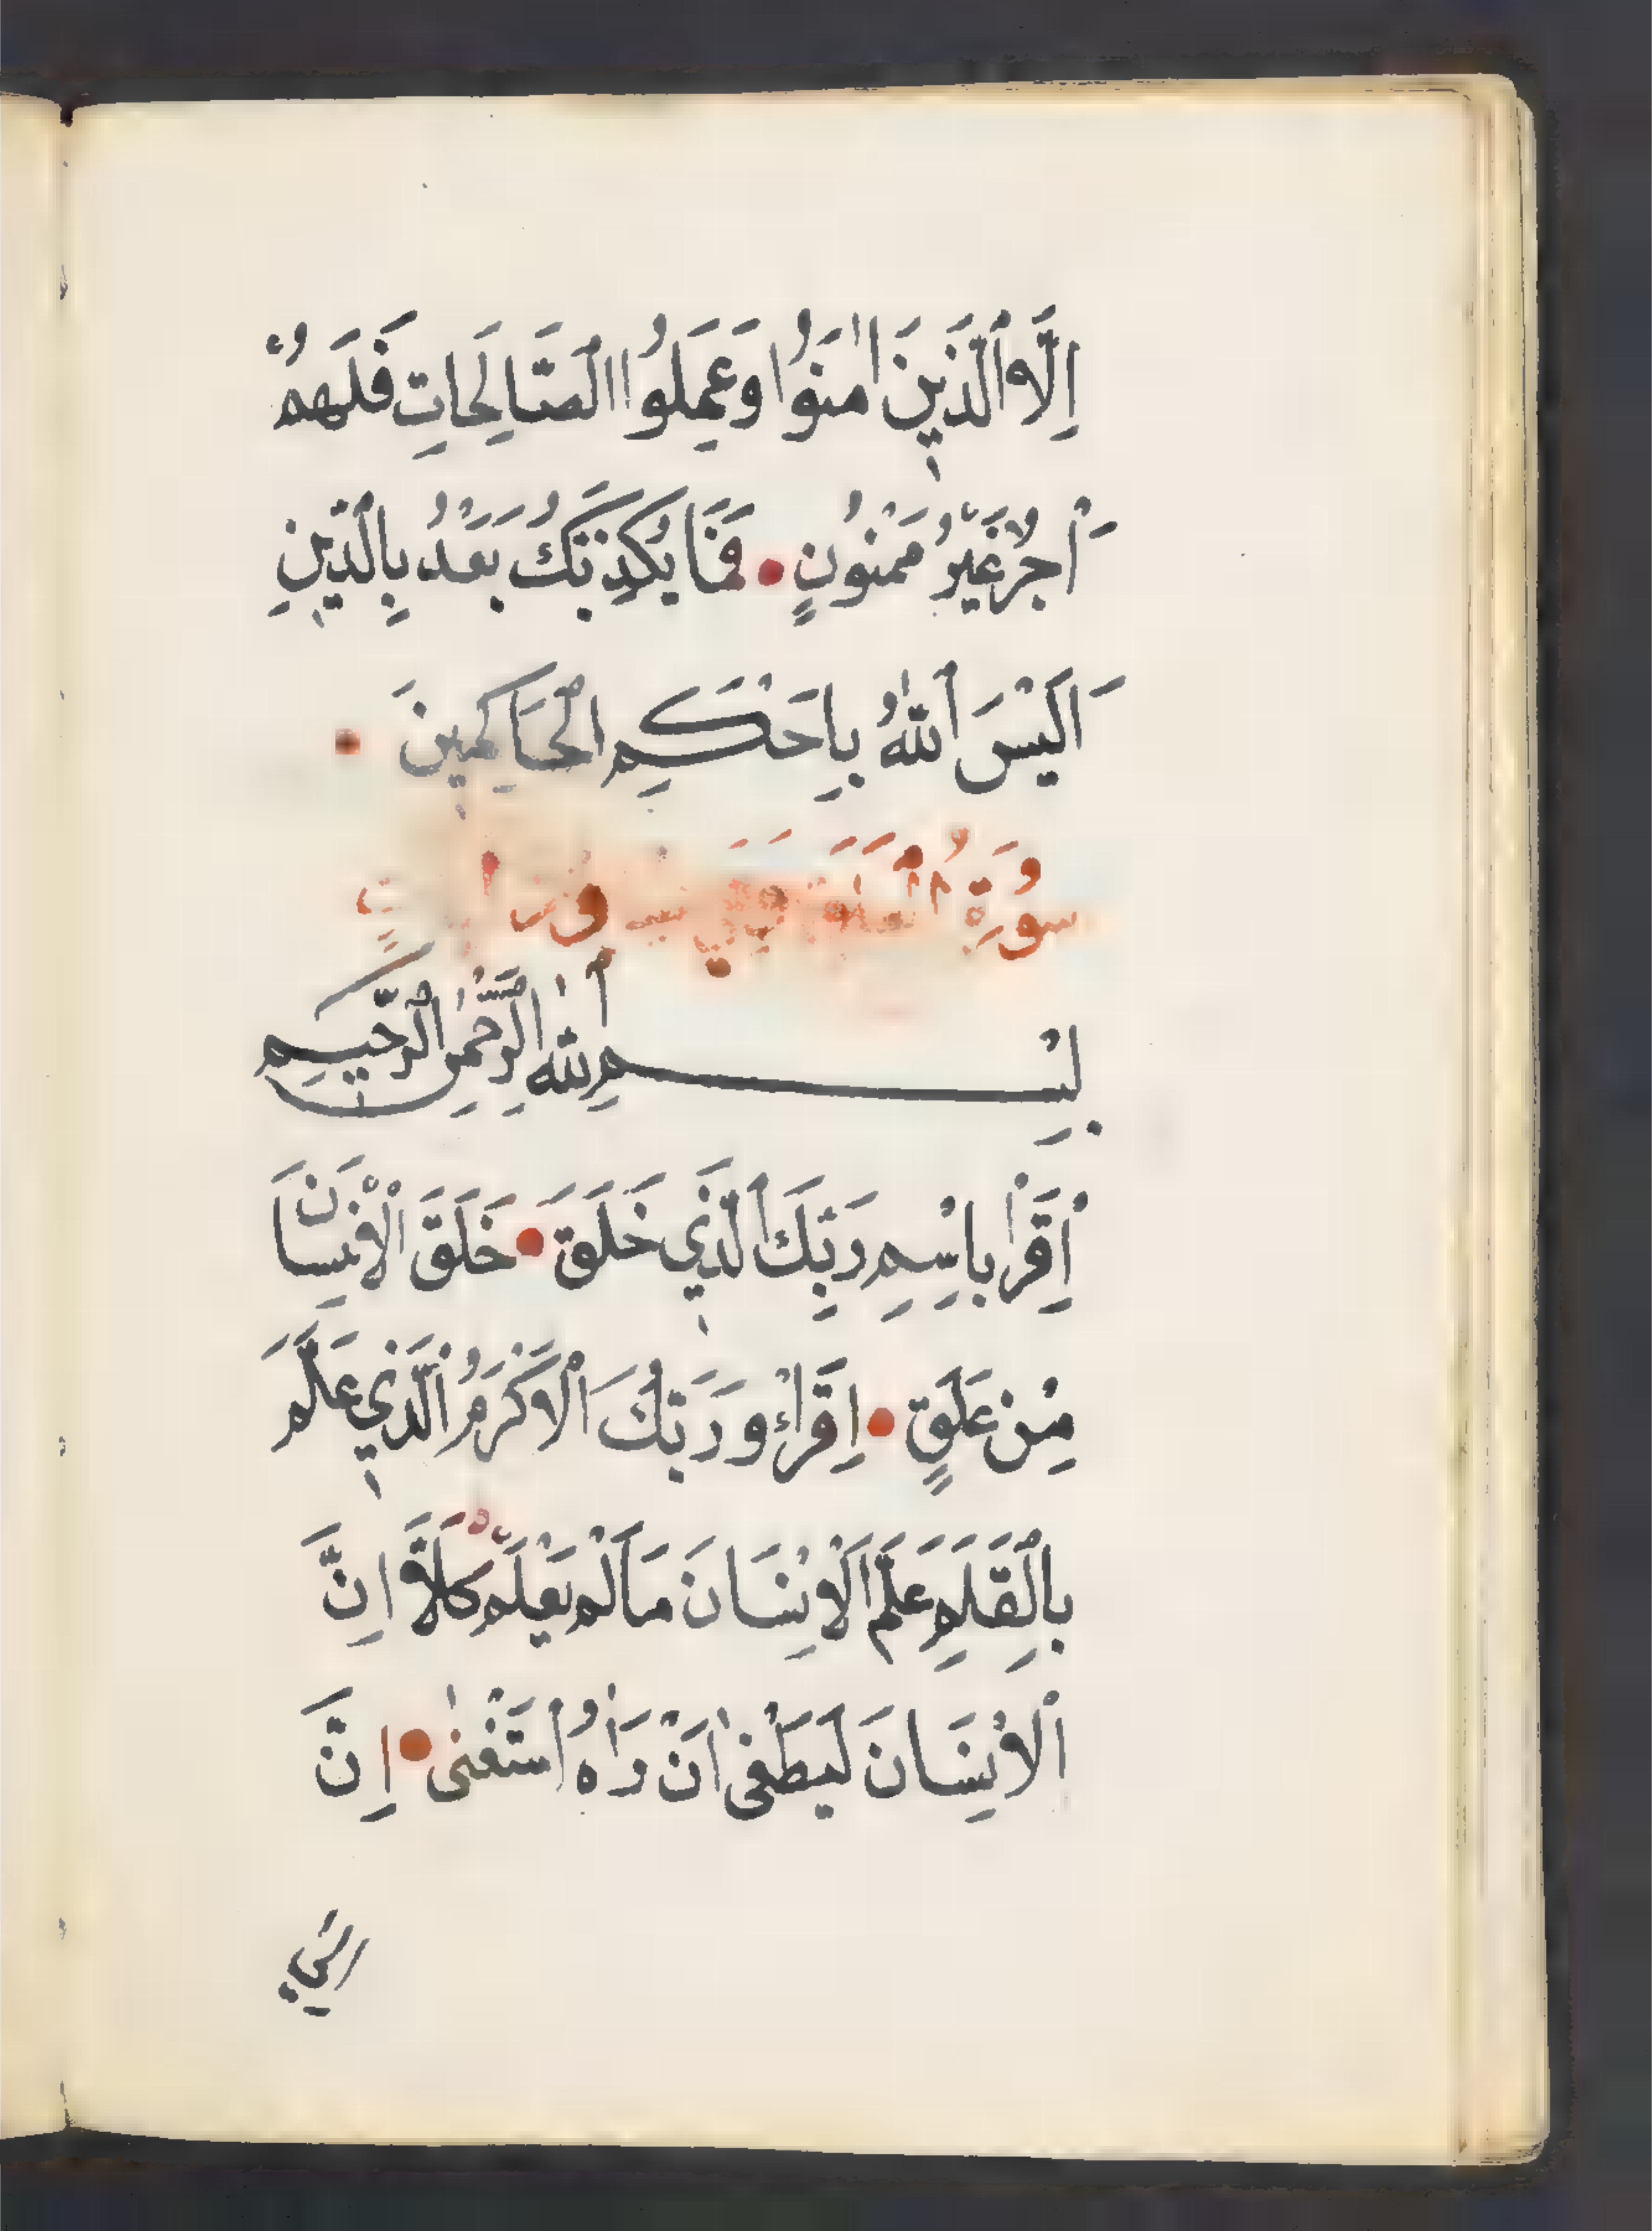 اِلَّا ٱلَّذِينَ اٰمَنُوا وَعَمِلُوا الصَّالِحَاتِ فَلَهُمْ
اَجْرٌ غَيْرُ مَمْنُونٍ • فَمَا يُكَذِّبُكَ بَعْدُ بِالدِّينِ
اَلَيْسَ ٱللّٰهُ بِاَحْكَمِ الْحَاكِمِينَ •
سُورَةُ
بِسْمِ ٱللّٰهِ الرَّحْمٰنِ الرَّحِيمِ
اِقْرَاْ بِاسْمِ رَبِّكَ ٱلَّذِي خَلَقَ • خَلَقَ الْاِنْسَانَ
مِنْ عَلَقٍ • اِقْرَاْ وَرَبُّكَ الْاَكْرَمُ ٱلَّذِي عَلَّمَ
بِالْقَلَمِ عَلَّمَ الْاِنْسَانَ مَا لَمْ يَعْلَمْ كَلَّا اِنَّ
الْاِنْسَانَ لَيَطْغٰى اَنْ رَاٰهُ اسْتَغْنٰى • اِنَّ
اِلٰى